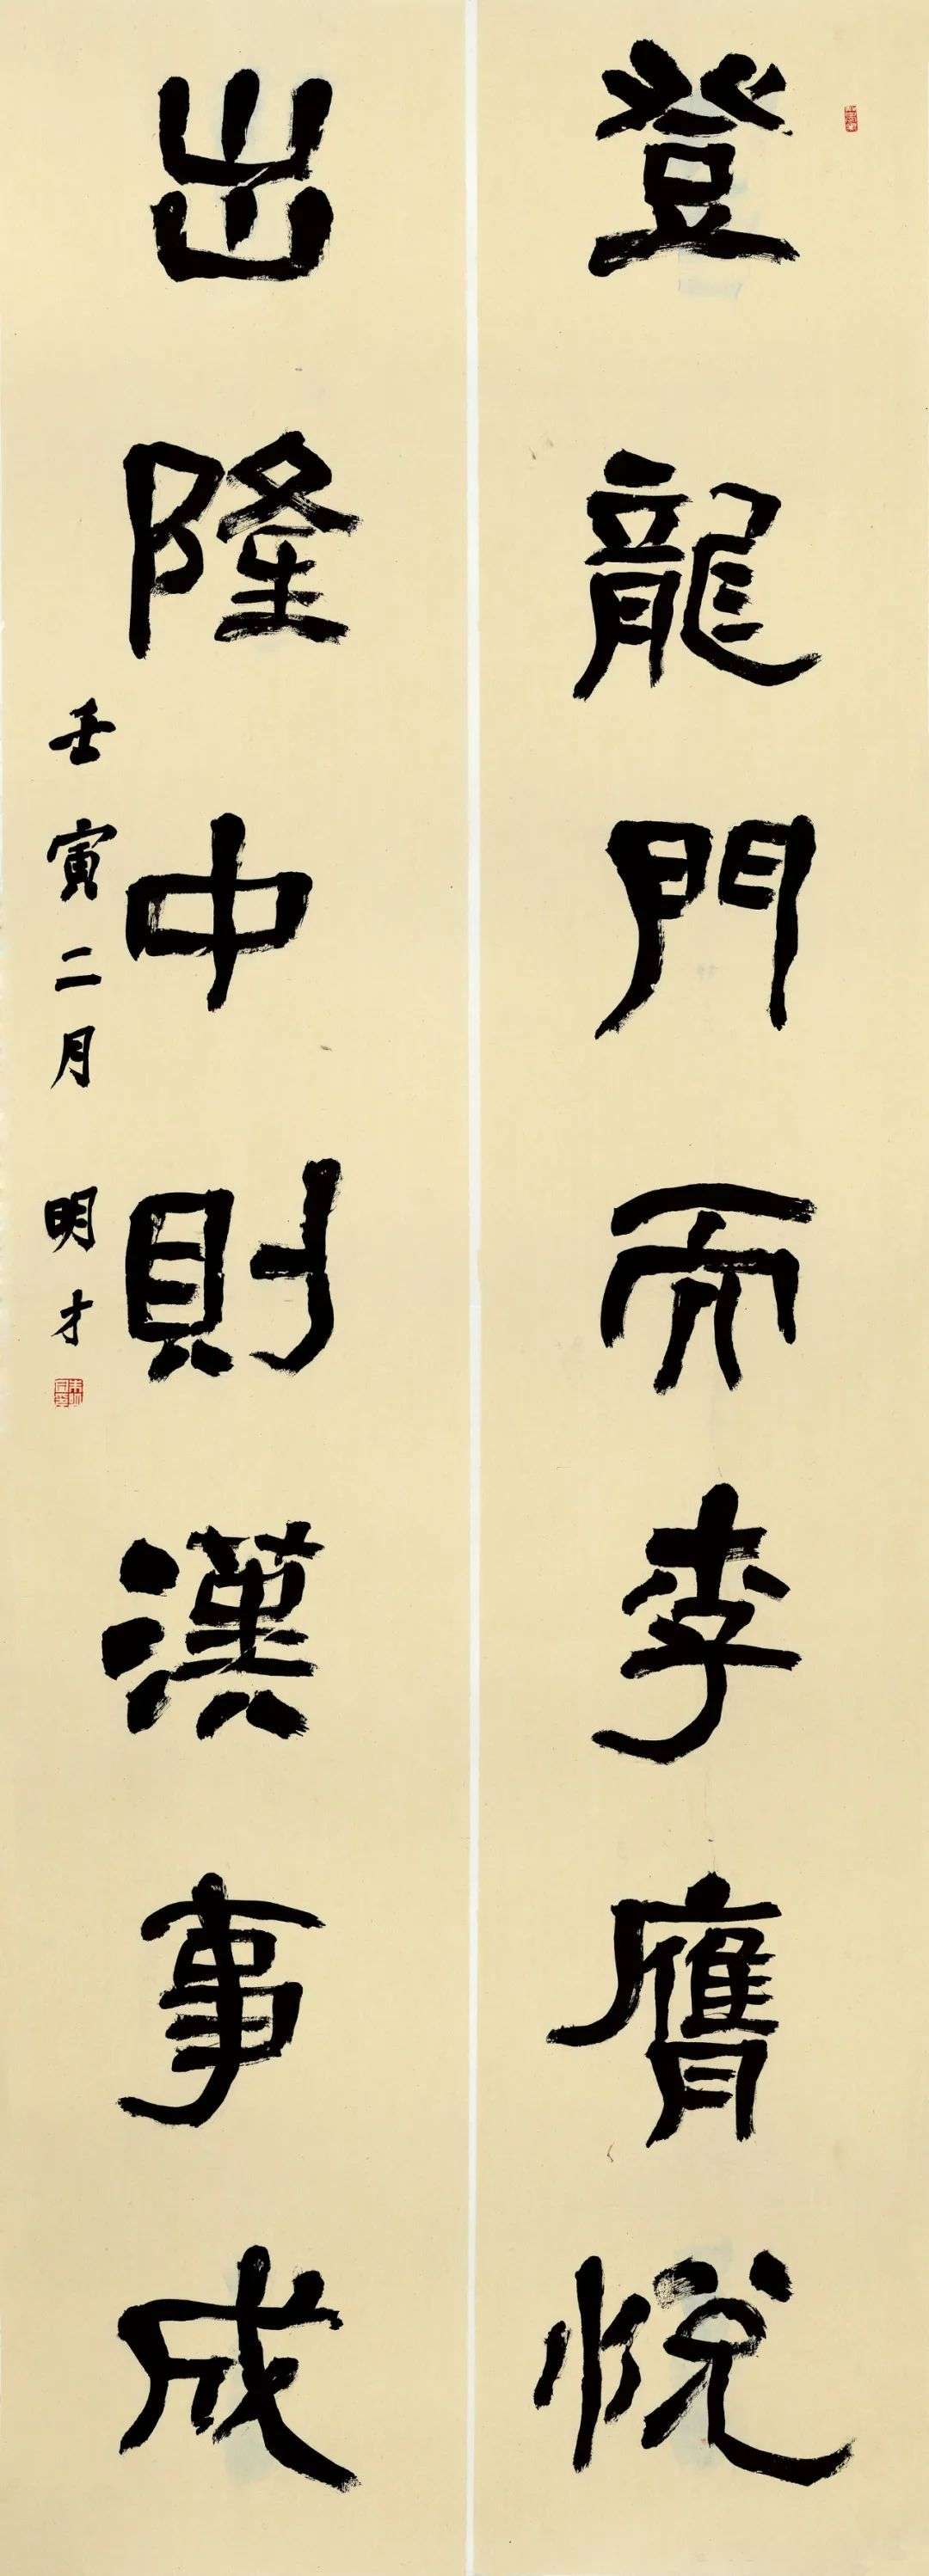 登龍門而李膺悦
出隆中則漢事成
壬寅二月 明才